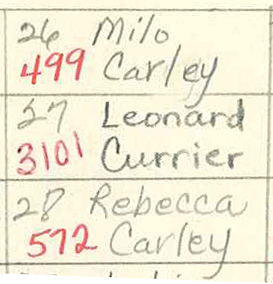 26 Milo
499 Carley
27 Leonard
3101 Currier
28 Rebecca
572 Carley